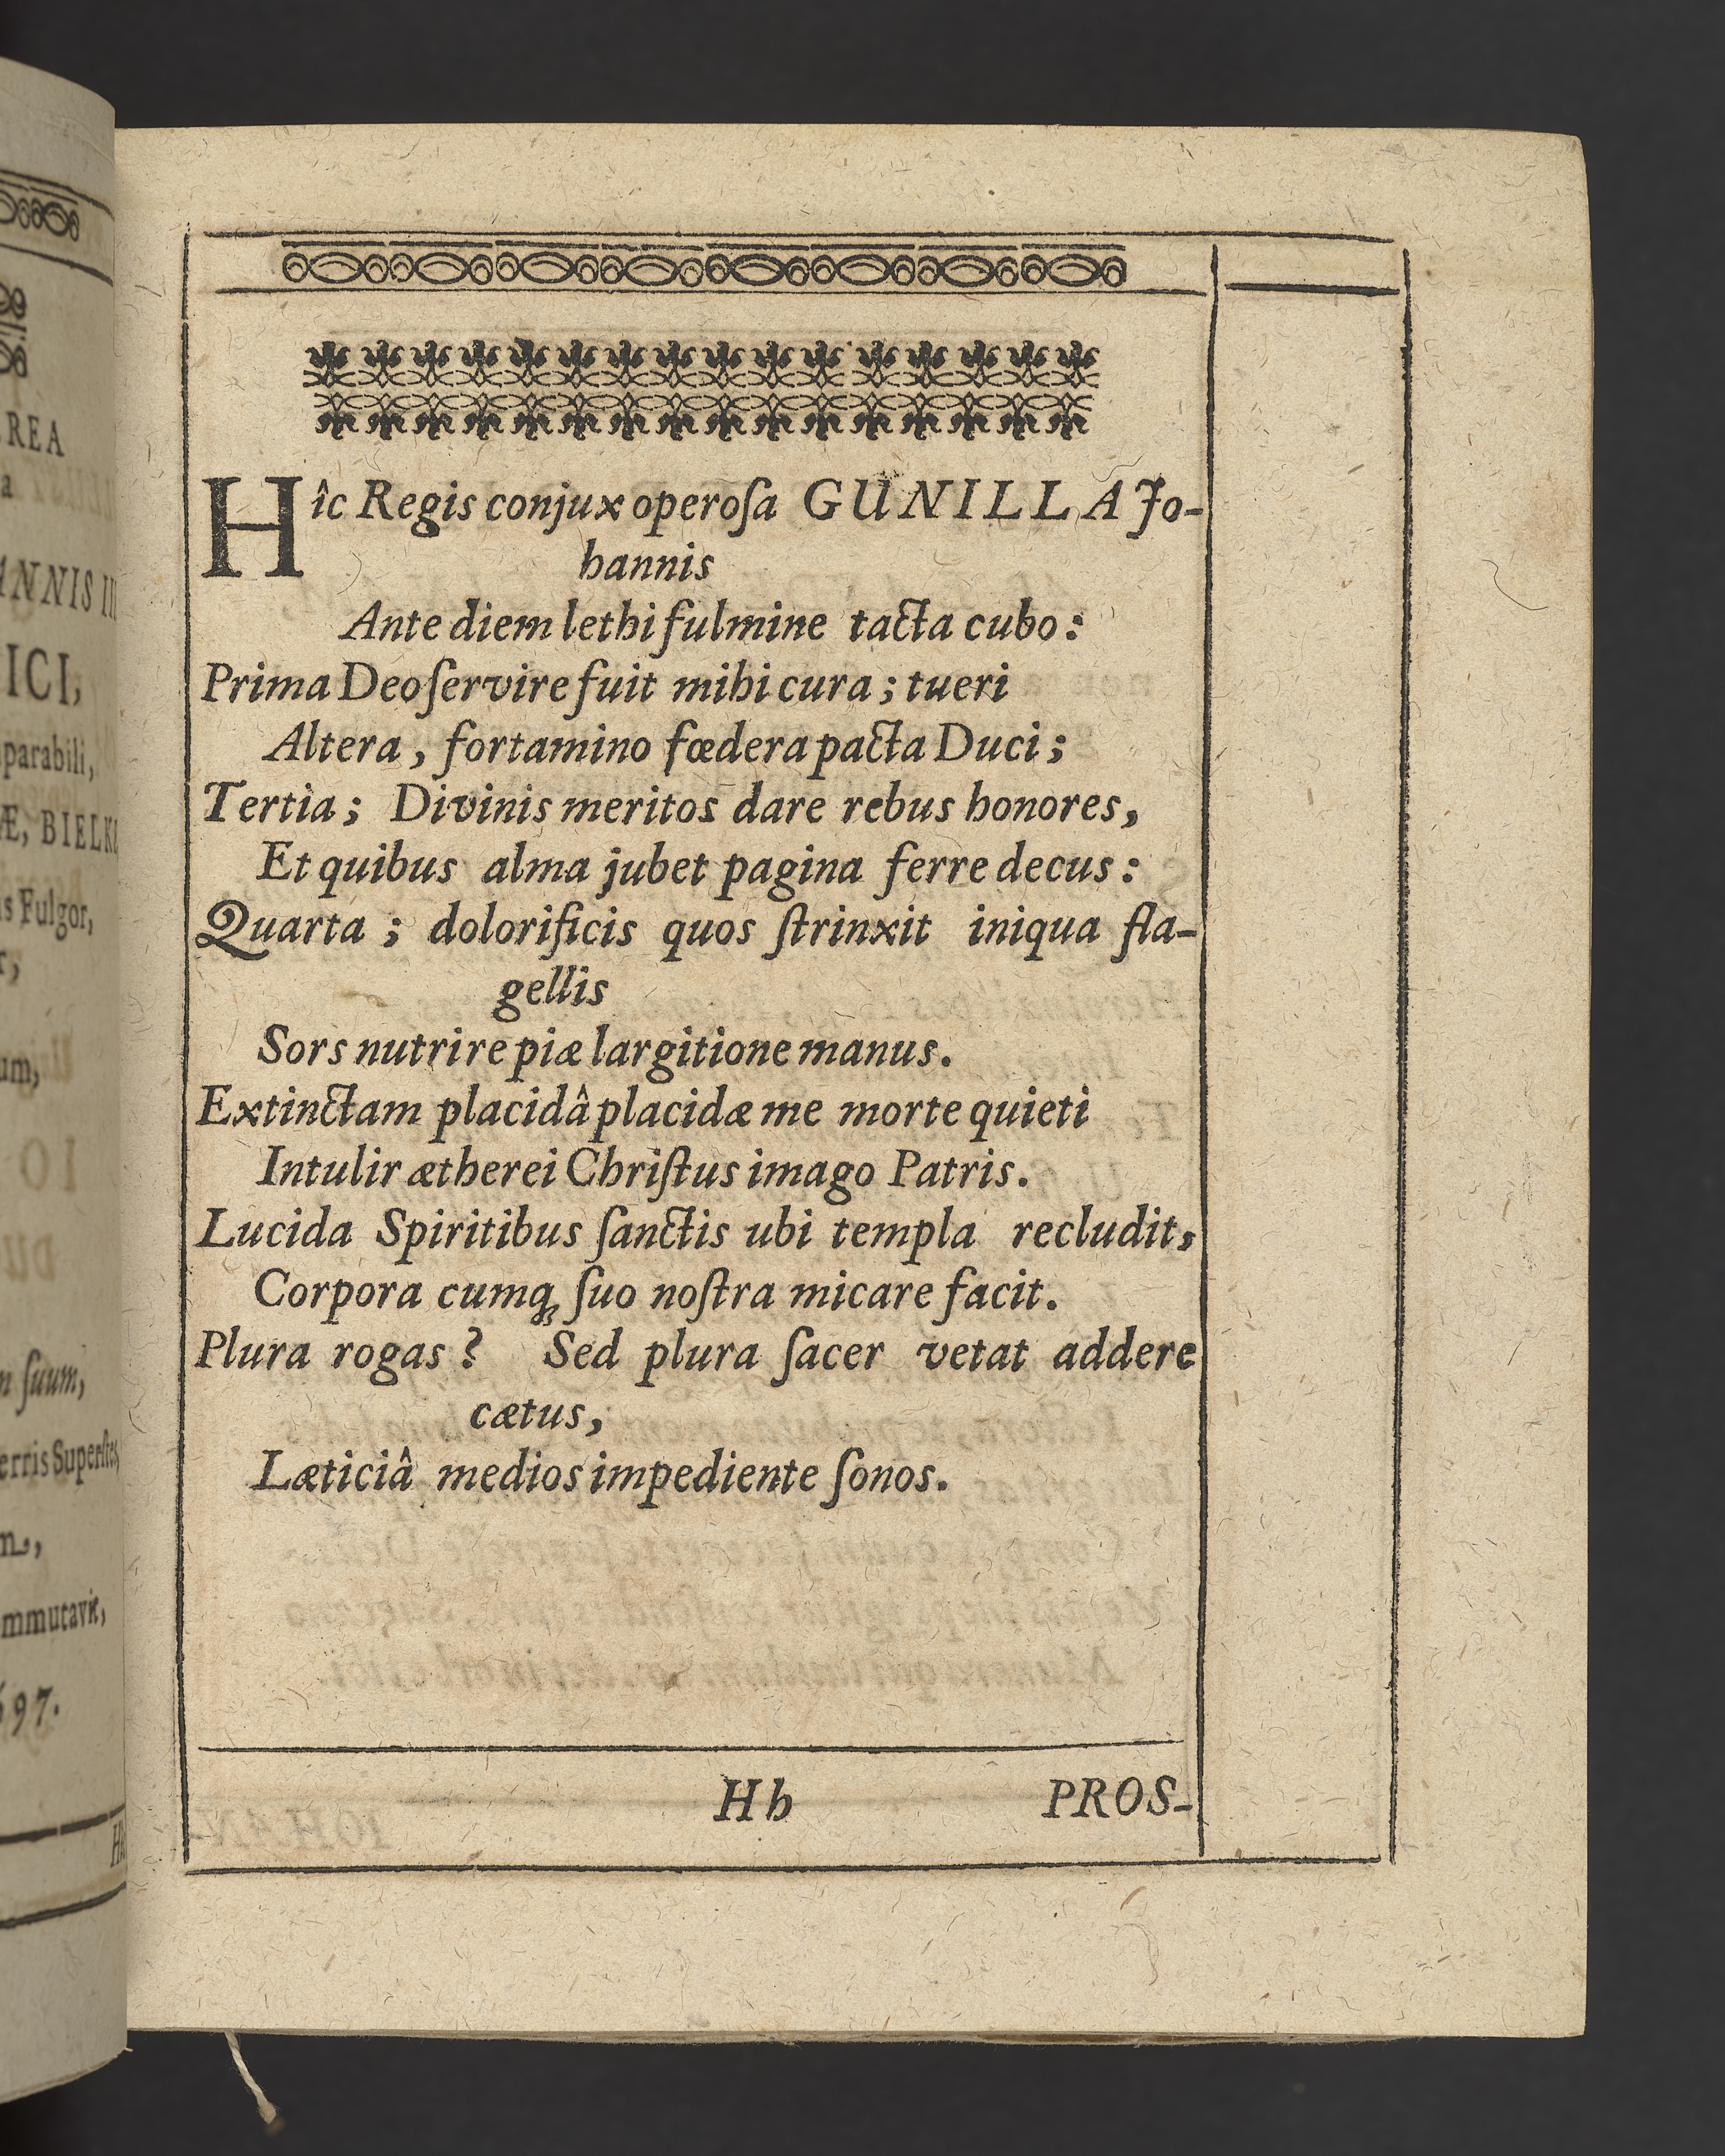 REA
a
ANNIS III
ICI,
parabili,
Æ, BIELKI
is Fulgor,
r,
um,
n ſuum,
erris Superſtes,
m,
mmutavit,
697.
Hîc Regis conjux operoſa GUNILLA Jo-
hannis
Ante diem lethi fulmine tacta cubo:
Prima Deo ſervire fuit mihi cura; tueri
Altera, fortamino fœdera pacta Duci;
Tertia; Divinis meritos dare rebus honores,
Et quibus alma jubet pagina ferre decus:
Quarta; dolorificis quos ſtrinxit iniqua fla-
gellis
Sors nutrire piæ largitione manus.
Extinctam placidâ placidæ me morte quieti
Intulir ætherei Chriſtus imago Patris.
Lucida Spiritibus ſanctis ubi templa recludit,
Corpora cumq́; ſuo noſtra micare facit.
Plura rogas? Sed plura ſacer vetat addere
cætus,
Læticiâ medios impediente ſonos.
Hh PROS-